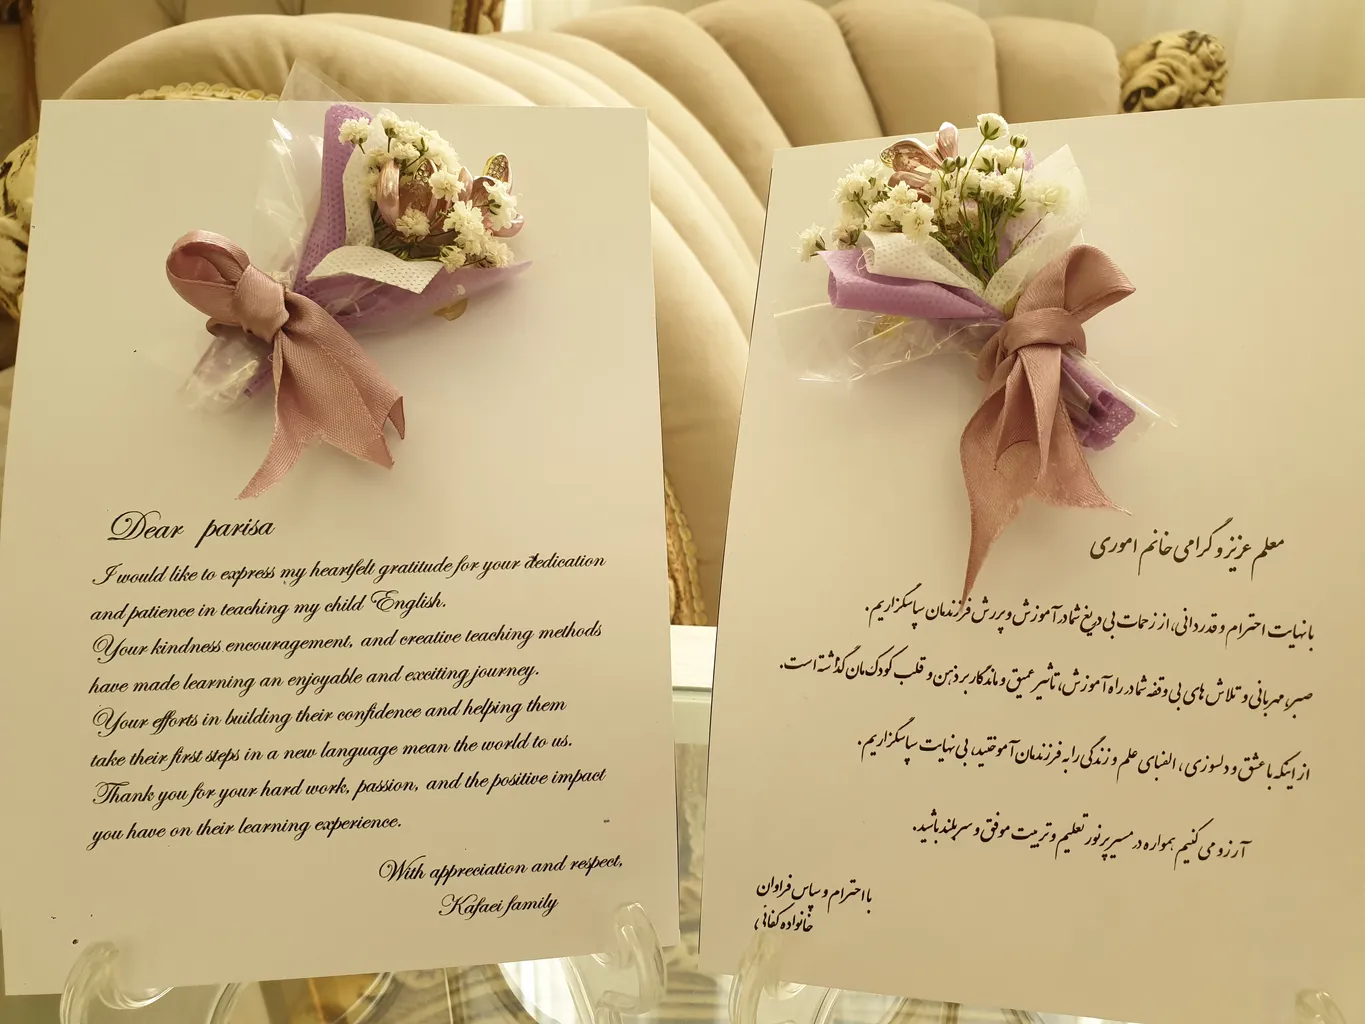 Dear parisa
I would like to express my heartfelt gratitude for your dedication
and patience in teaching my child English.
Your kindness encouragement, and creative teaching methods
have made learning an enjoyable and exciting journey.
Your efforts in building their confidence and helping them
take their first steps in a new language mean the world to us.
Thank you for your hard work, passion, and the positive impact
you have on their learning experience.
With appreciation and respect,
Kafaei family
معلم عزیز و گرامی خانم اموری
با نهایت احترام و قدردانی، از زحمات بی دریغ شما در آموزش و پررش فرزندمان سپاسگزاریم.
صبر، مهربانی و تلاش های بی وقفه شما در راه آموزش، تاثیر عمیق و ماندگار بر ذهن و قلب کودک مان گذاشته است.
از اینکه با عشق و دلسوزی، الفبای علم و زندگی را به فرزندمان آموختید، بی نهایت سپاسگزاریم.
آرزو می کنیم همواره در مسیر پرنور تعلیم و تربیت موفق و سربلند باشید.
با احترام و سپاس فراوان
خانواده کفائی